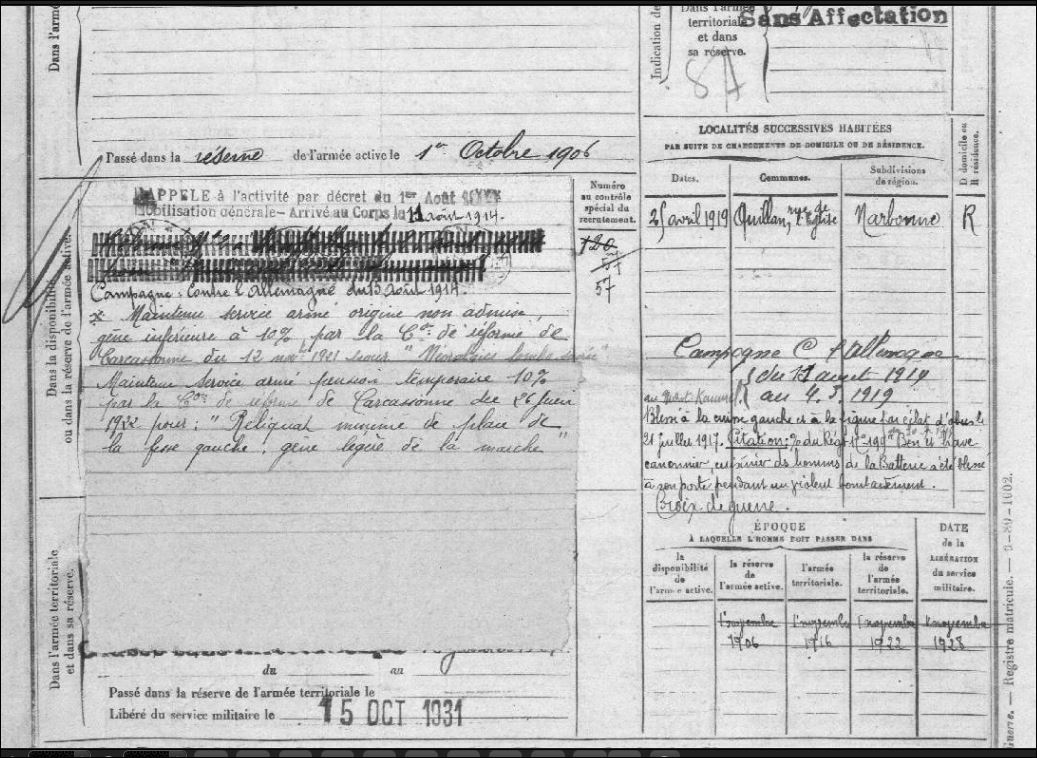 Dans l'armé
Indication de
Dans l'armée
territoriale
et dans
sa réserve.
Sans Affectation
8A
Passé dans la réserve de l'armée active le 1er Octobre 1906
Dans la disponibilité
ou dans la réserve de l'armée active.
RAPPELÉ à l'activité par décret du 1er Août
Mobilisation générale – Arrivé au Corps le 11 août 1914.
Campagne : Contre l'Allemagne du 13 août 1914.
Maintenu service armé origine non admise,
gêne inférieure à 10% par la Con de réforme de
Carcassonne du 12 nov 1921 pour "
Maintenu Service armé pension temporaire 10%
par la Con de réforme de Carcassonne du 26 Juin
1922 pour : " Reliquat minime de plaie de
la fesse gauche, gêne légère de la marche "
Numéro
au contrôle
spécial du
recrutement.
120
57
57
LOCALITÉS SUCCESSIVES HABITÉES
PAR SUITE DE CHANGEMENTS DE DOMICILE OU DE RÉSIDENCE.
Dates.
Communes.
Subdivisions
de région.
D domicile ou
R résidence.
25 avril 1919 Quillan, rue de l'Eglise Narbonne R
Campagne C. l'Allemagne
du 11 août 1914
au 4.3.1919
Blessé à la cuisse gauche et à la par éclat d'obus le
21 juillet 1917. Citation : du Régt Bon et brave
canonnier, cuisinier des hommes de la Batterie a été blessé
à son poste pendant un violent bombardement.
Croix de guerre.
ÉPOQUE
À LAQUELLE L'HOMME DOIT PASSER DANS
DATE
de la
LIBÉRATION
du service
militaire.
la
disponibilité
de
l'armée active.
la réserve
de
l'armée active.
l'armée
territoriale.
la réserve
de
l'armée
territoriale.
1er novembre 1er novembre 1er novembre 1er novembre
1906 1916 1922 1928
Dans l'armée territoriale
et dans sa réserve.
du au
Passé dans la réserve de l'armée territoriale le
Libéré du service militaire le 15 OCT 1931
Guerre. — Registre matricule. —